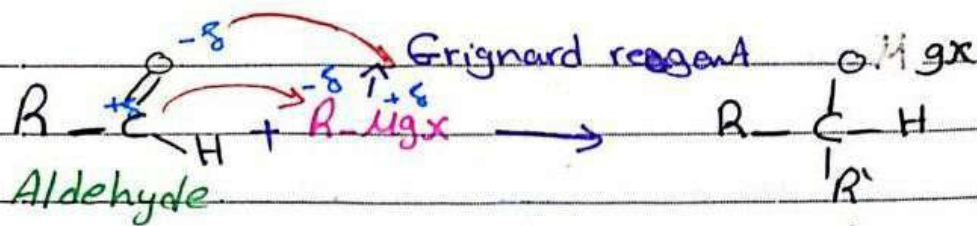 -δ Grignard reagent O Mgx
O -δ
+δ ↑+δ
R-C-H + R-Mgx → R-C-H
Aldehyde R'